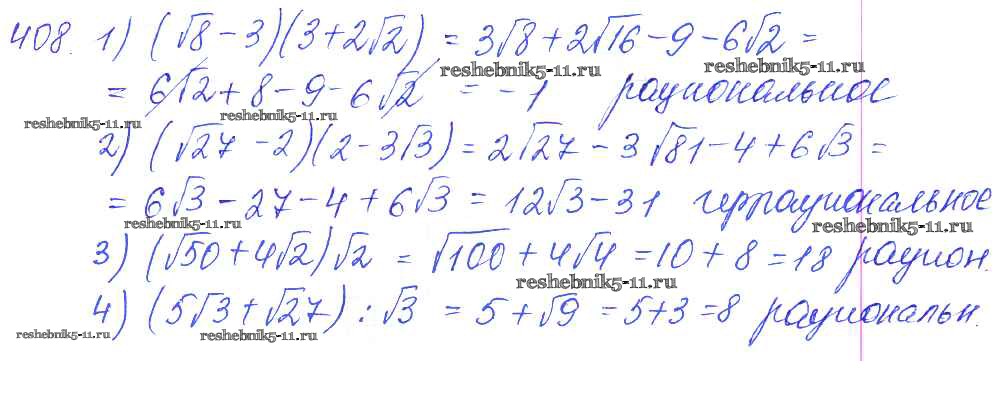 408. 1) (√8 - 3)(3 + 2√2) = 3√8 + 2√16 - 9 - 6√2 =
reshebnik5-11.ru reshebnik5-11.ru
= 6√2 + 8 - 9 - 6√2 = -1 рациональное
reshebnik5-11.ru reshebnik5-11.ru
2) (√27 - 2)(2 - 3√3) = 2√27 - 3√81 - 4 + 6√3 =
= 6√3 - 27 - 4 + 6√3 = 12√3 - 31 иррациональное
reshebnik5-11.ru reshebnik5-11.ru
3) (√50 + 4√2)√2 = √100 + 4√4 = 10 + 8 = 18 рацион.
reshebnik5-11.ru
4) (5√3 + √27) : √3 = 5 + √9 = 5+3 = 8 рациональн.
reshebnik5-11.ru reshebnik5-11.ru